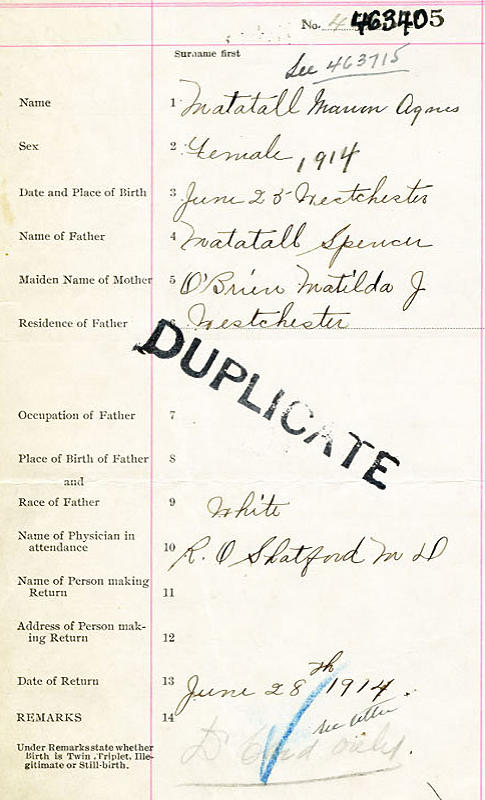 No. 463405
Surname first
See 463715
Name 1 Matatall Marion Agnes
Sex 2 Female, 1914
Date and Place of Birth 3 June 25 Westchester
Name of Father 4 Matatall Spencer
Maiden Name of Mother 5 O'Brien Matilda J
Residence of Father 6 Westchester
DUPLICATE
Occupation of Father 7
Place of Birth of Father 8
and
Race of Father 9 White
Name of Physician in
attendance 10 R. O Shatford M D
Name of Person making
Return 11
Address of Person mak-
ing Return 12
Date of Return 13 June 28th 1914.
REMARKS 14 see letter
Under Remarks state whether
Birth is Twin, Triplet, Ille-
gitimate or Still-birth.
only.